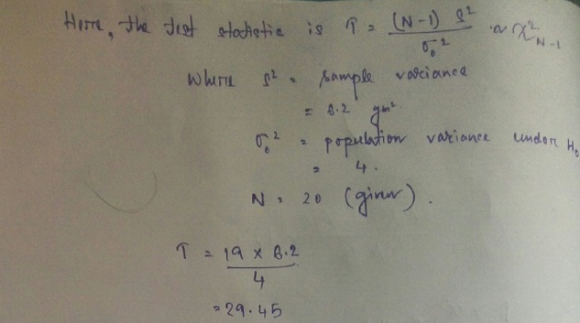 Here, the test statistic is T = (N-1) S² / σ₀² ~ χ²_{N-1}
Where S² = sample variance
= 6.2 gm².
σ₀² = population variance under H₀
= 4.
N = 20 (given).
T = 19 × 6.2 / 4
= 29.45